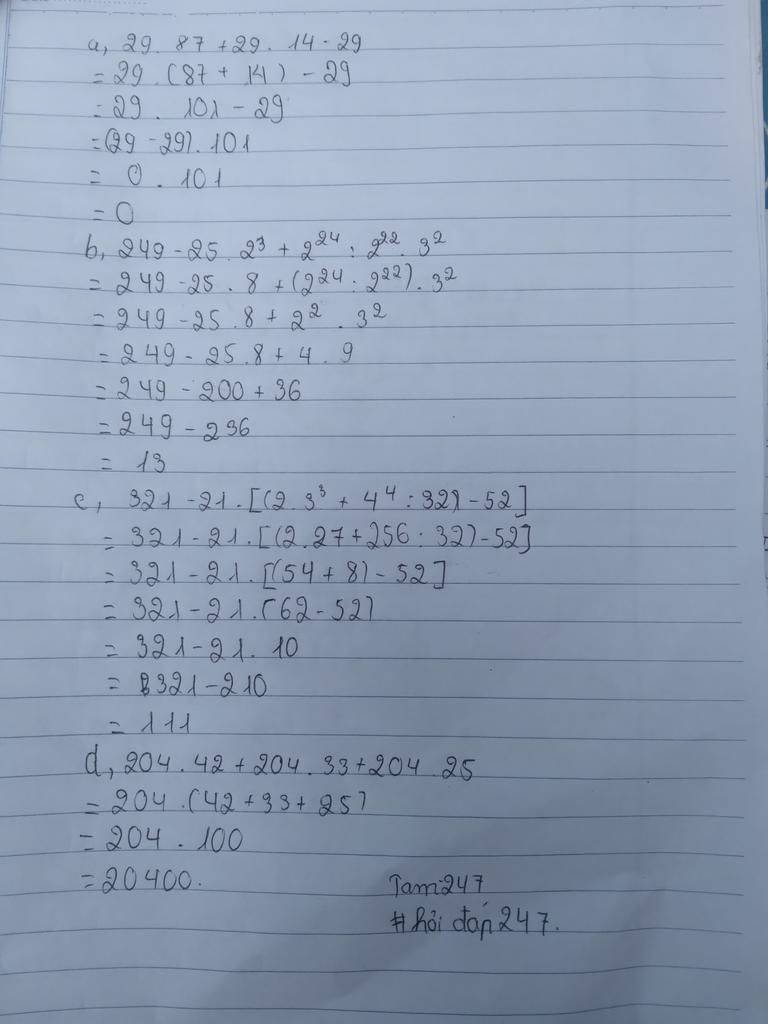 a, 29. 87 + 29. 14 - 29
= 29 . (87 + 14) - 29
= 29 . 101 - 29
= (29 - 29). 101
= 0 . 101
= 0
b, 249 - 25 . 2³ + 2²⁴ : 2²² . 3²
= 249 - 25 . 8 + (2²⁴ : 2²²) . 3²
= 249 - 25 . 8 + 2² . 3²
= 249 - 25 . 8 + 4 . 9
= 249 - 200 + 36
= 249 - 236
= 13
c, 321 - 21 . [(2 . 3³ + 4⁴ : 32) - 52]
= 321 - 21 . [(2. 27 + 256 : 32) - 52]
= 321 - 21 . [(54 + 8) - 52]
= 321 - 21 . (62 - 52)
= 321 - 21 . 10
= 321 - 210
= 111
d, 204 . 42 + 204 . 33 + 204 . 25
= 204 . (42 + 33 + 25)
= 204 . 100
= 20400.
Tami247
# hỏi đáp 247.